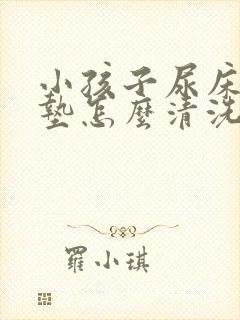 小孩子尿床
墊怎麼清洗
羅小琪